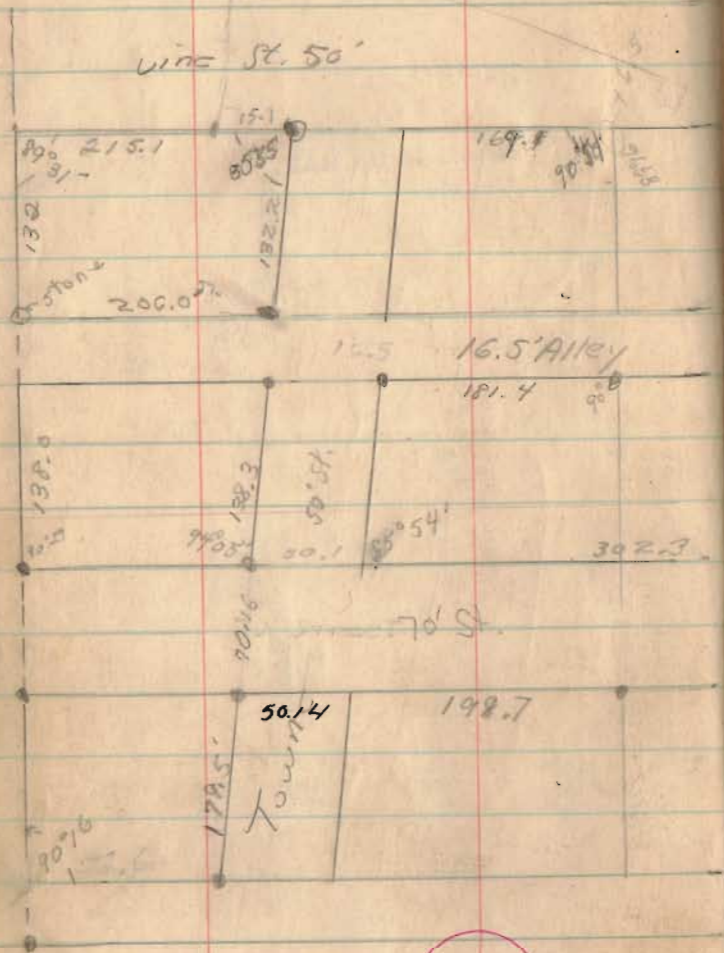 Vine St. 50'
15.1
89° 215.1
31-
169.1
90°54'
132
132.21
stone
206.0
16.5 16.5' Alley
181.4
90°
138.0
138.3
50' St.
94°05'
50.1
85°54'
302.3
70.16
70' St.
50.14
198.7
179.5'
Town
90°16